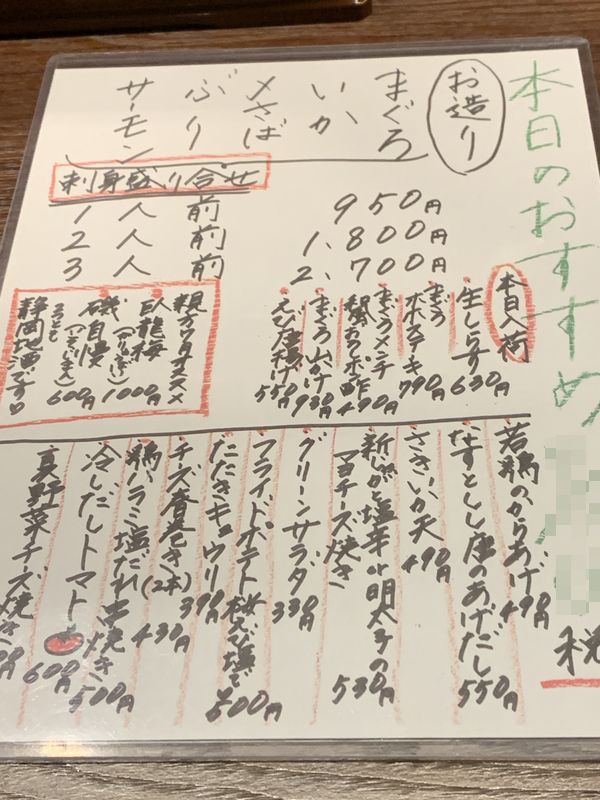 本日のおすすめ
税
お造り
まぐろ
いか
〆さば
ぶり
サーモン
刺身盛り合せ
1人前 950円
2人前 1,800円
3人前 2,700円
本日入荷
生しらす 630円
まぐろ
ホホステーキ 790円
まぐろメンチ 490円
まぐろ山かけ 930円
えび唐揚げ 550円
親方のオススメ
臥龍梅 1000円
磯自慢
600円
静岡地酒
若鶏のからあげ 490円
なすとしし唐のあげだし 550円
さきいか天 490円
新じゃが塩辛or明太子の
マヨチーズ焼き 530円
グリーンサラダ 330円
フライドポテト桜えび塩で 500円
たたきキュウリ 390円
チーズ春巻き(2本) 430円
鶏ハラミ塩だれ串焼き 500円
冷しだしトマト 600円
夏野菜チーズ焼き